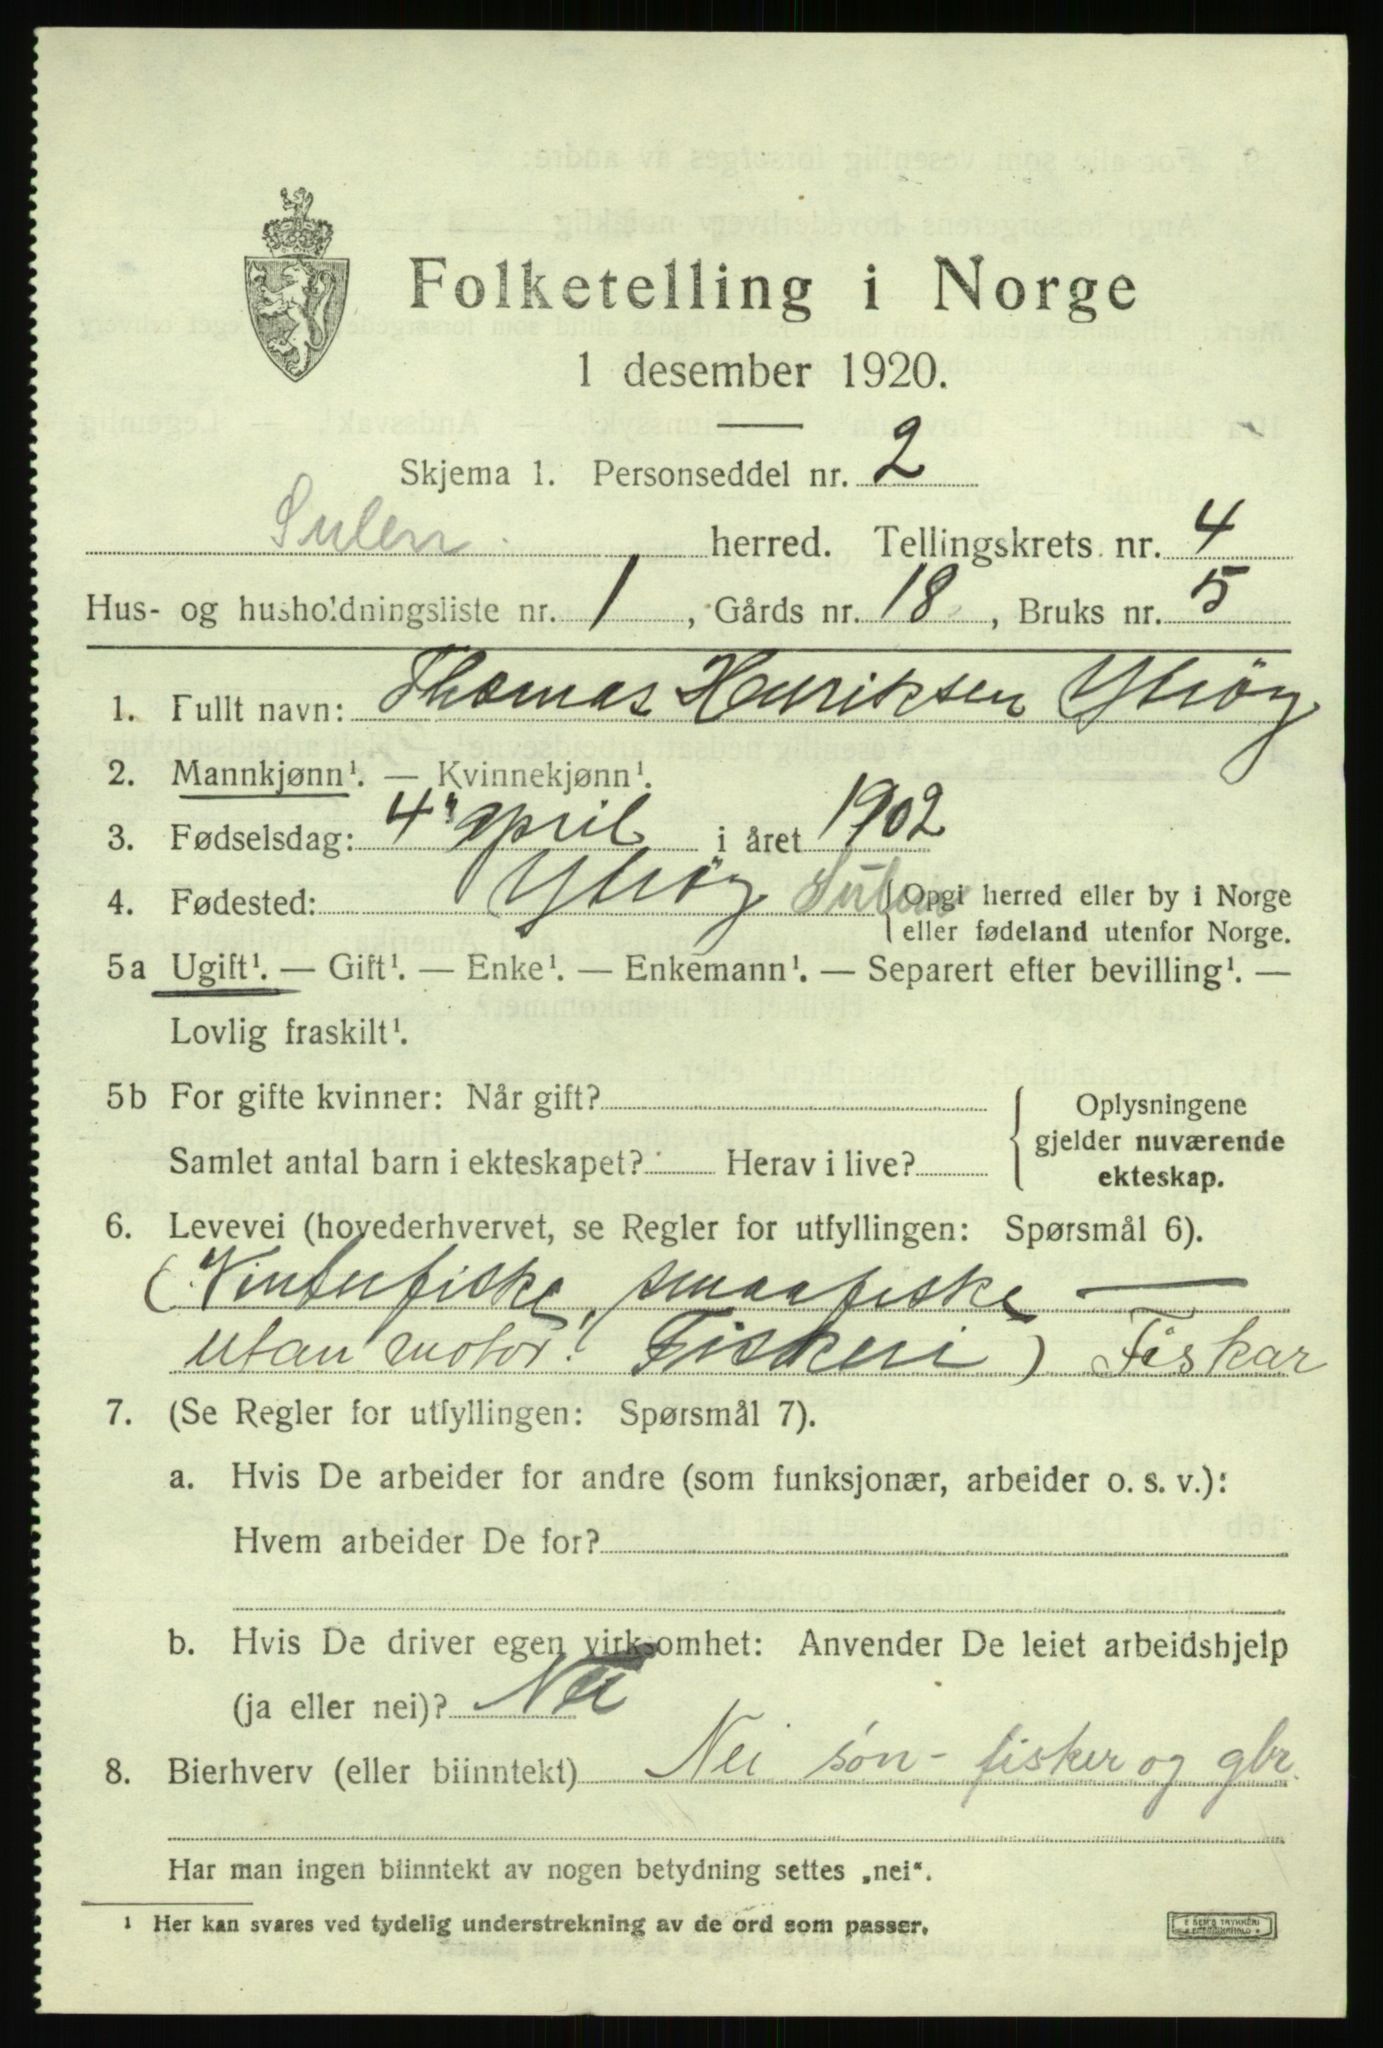 Folketelling i Norge
1 desember 1920.
Skjema 1. Personseddel nr. 2
Sulen herred. Tellingskrets nr. 4
Hus- og husholdningsliste nr. 1, Gårds nr. 18, Bruks nr. 5
1. Fullt navn: Thomas Henriksen Ytrøy
2. Mannkjønn¹. — Kvinnekjønn¹.
3. Fødselsdag: 4 april i året 1902
4. Fødested: Ytrøy Sulen {Opgi herred eller by i Norge
eller fødeland utenfor Norge.
5a Ugift¹. — Gift¹. — Enke¹. — Enkemann¹. — Separert efter bevilling¹. —
Lovlig fraskilt¹.
5b For gifte kvinner: Når gift?
Samlet antal barn i ekteskapet? Herav i live?
{Oplysningene
gjelder nuværende
ekteskap.
6. Levevei (hovederhvervet, se Regler for utfyllingen: Spørsmål 6).
(Vinterfiske, smaafiske —
utan motor! Fiskeri) Fiskar
7. (Se Regler for utfyllingen: Spørsmål 7).
a. Hvis De arbeider for andre (som funksjonær, arbeider o. s. v.):
Hvem arbeider De for?
b. Hvis De driver egen virksomhet: Anvender De leiet arbeidshjelp
(ja eller nei)? Nei
8. Bierhverv (eller biinntekt) Nei søn - fisker og gbr.
Har man ingen biinntekt av nogen betydning settes „nei“.
¹ Her kan svares ved tydelig understrekning av de ord som passer.